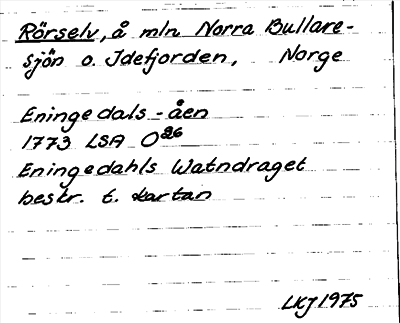 Rörselv, å mln Norra Bullare-
sjön o. Idefjorden, Norge
Eningedals-åen
1773 LSA O26
Eningedahls Watndraget
beskr. t. kartan
LKJ 1975